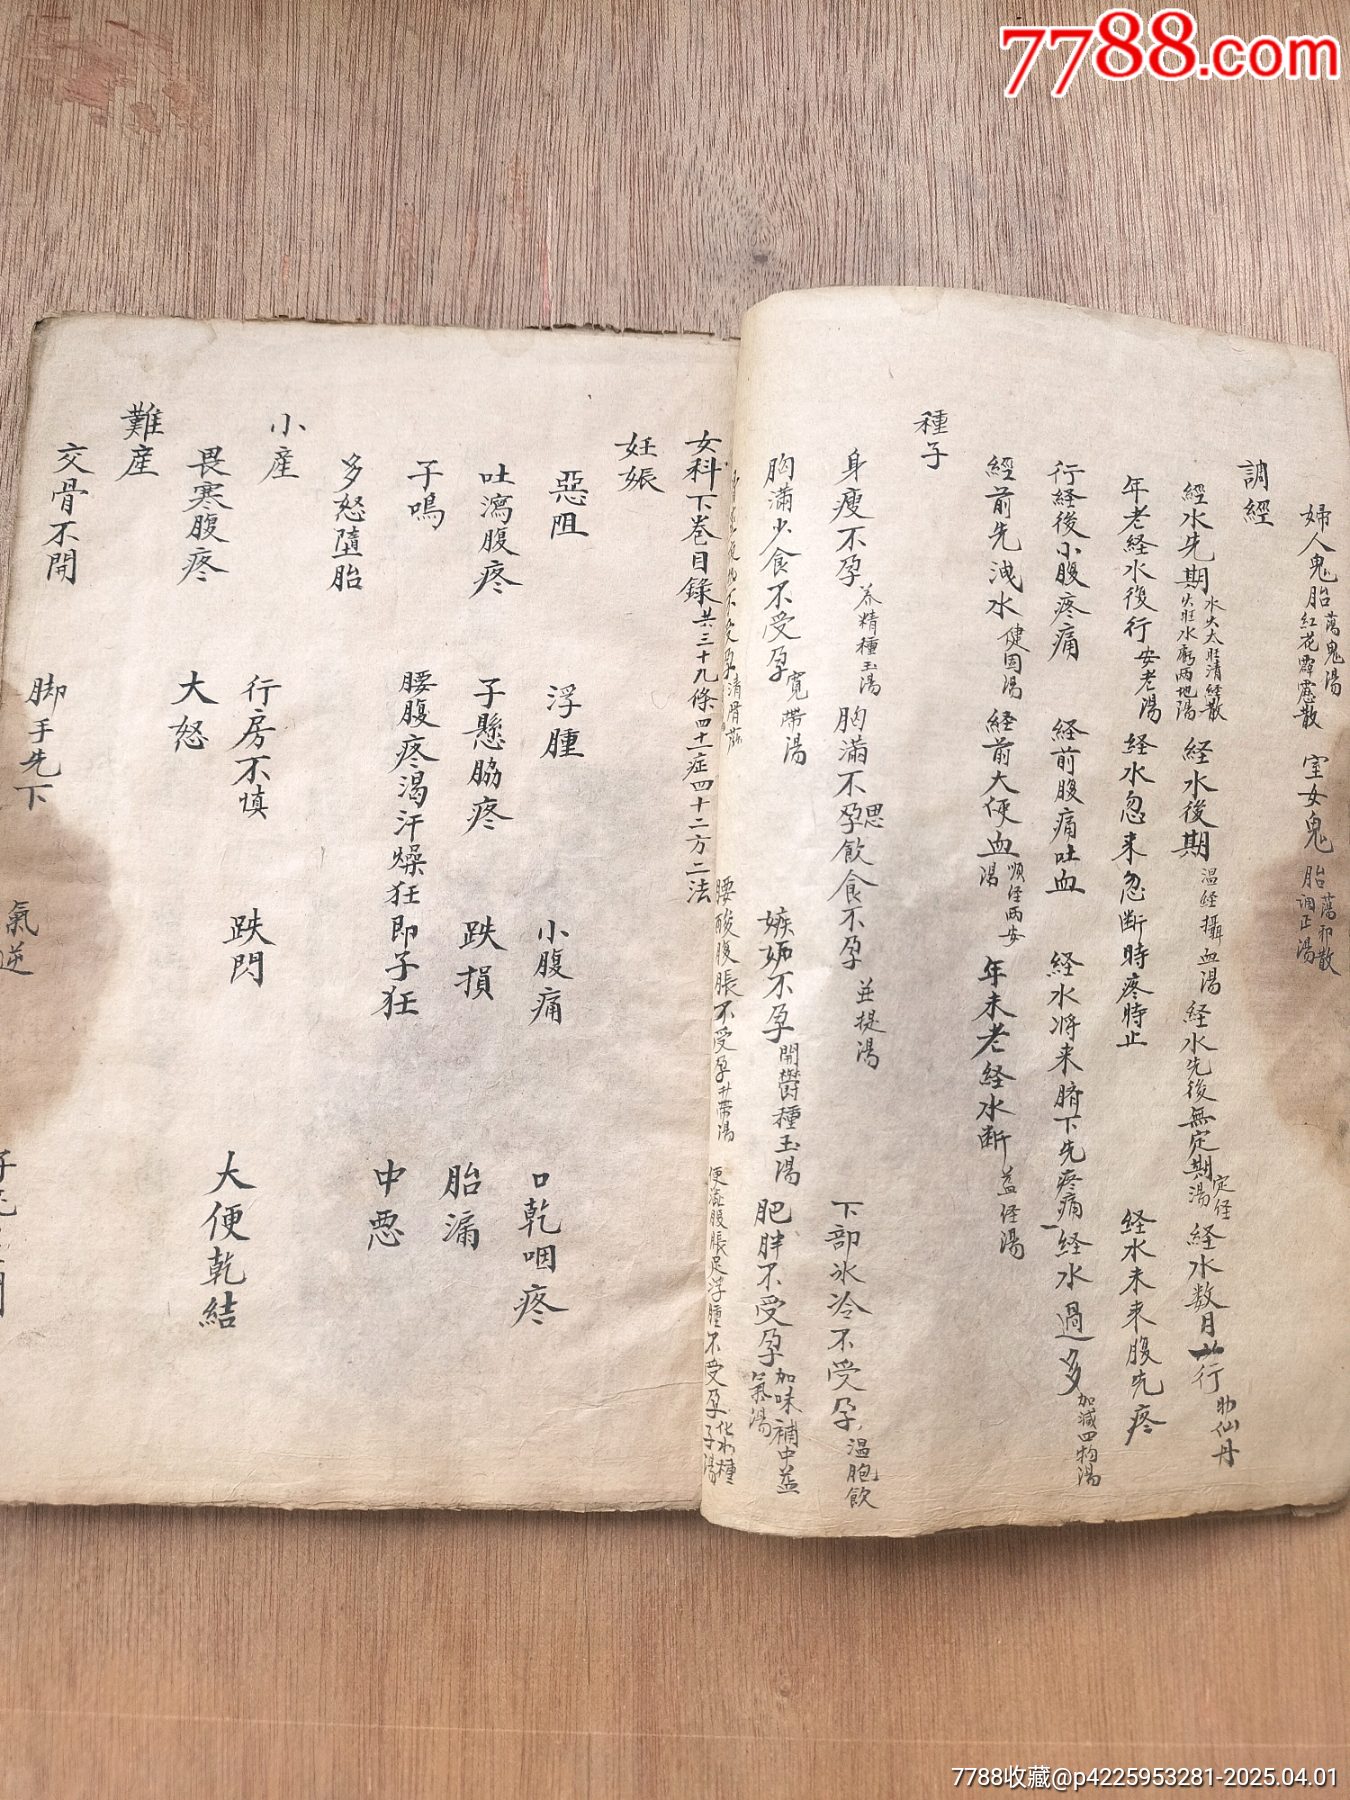 7788.com
婦人鬼胎 蕩鬼湯 紅花霹靂散 室女鬼胎 蕩邪散 調正湯
調經
經水先期 水火太旺清經散 火旺水虧兩地湯 経水後期 温経攝血湯 経水先後無定期 定經湯 経水数月一行 助仙丹
年老経水復行 安老湯 経水忽来忽断時疼時止 経水未来腹先疼
行経後小腹疼痛 経前腹痛吐血 経水将来臍下先疼痛 経水過多 加減四物湯
經前先洩水 健固湯 経前大便血 順經兩安湯 年未老経水断 益經湯
種子
身瘦不孕 养精種玉湯 胸滿不思飲食不孕 並提湯 下部氷冷不受孕 温胞飲
胸滿少食不受孕 寬帶湯 嫉妒不孕 開鬱種玉湯 肥胖不受孕 加味補中益氣湯
不受孕 清骨散 腰酸腹脹不受孕 升帶湯 便澁腹脹足浮腫不受孕 化水種子湯
女科下卷目錄 共三十九條四十一症四十二方二法
妊娠
惡阻 浮腫 小腹痛 口乾咽疼
吐瀉腹疼 子懸脇疼 跌損 胎漏
子鳴 腰腹疼渴汗燥狂即子狂 中惡
多怒墮胎
小產 行房不慎 跌閃 大便乾結
畏寒腹疼 大怒
難產
交骨不開 脚手先下 氣逆
7788收藏@p4225953281-2025.04.01